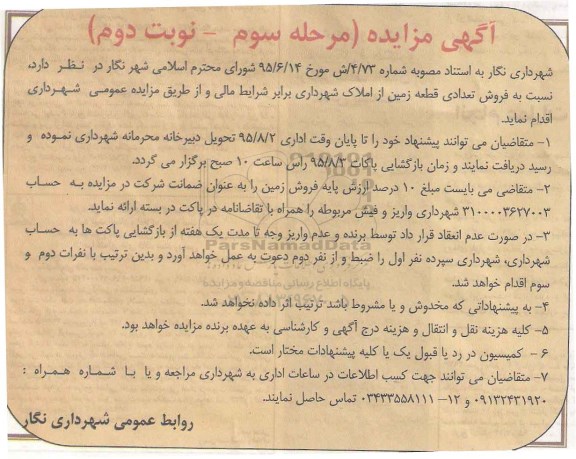 آگهی مزایده (مرحله سوم - نوبت دوم)
شهرداری نگار به استناد مصوبه شماره ۴/۷۳/ش مورخ ۹۵/۶/۱۴ شورای محترم اسلامی شهر نگار در نظر دارد،
نسبت به فروش تعدادی قطعه زمین از املاک شهرداری برابر شرایط مالی و از طریق مزایده عمومی شهرداری
اقدام نماید.
۱- متقاضیان می توانند پیشنهاد خود را تا پایان وقت اداری ۹۵/۸/۲ تحویل دبیرخانه محرمانه شهرداری نموده و
رسید دریافت نمایند و زمان بازگشایی پاکات ۹۵/۸/۳ راس ساعت ۱۰ صبح برگزار می گردد.
۲- متقاضی می بایست مبلغ ۱۰ درصد ارزش پایه فروش زمین را به عنوان ضمانت شرکت در مزایده به حساب
۳۱۰۰۰۰۳۶۲۷۰۰۳ شهرداری واریز و فیش مربوطه را همراه با تقاضانامه در پاکت در بسته ارائه نماید.
۳- در صورت عدم انعقاد قرار داد توسط برنده و عدم واریز وجه تا مدت یک هفته از بازگشایی پاکت ها به حساب
شهرداری، شهرداری سپرده نفر اول را ضبط و از نفر دوم دعوت به عمل خواهد آورد و بدین ترتیب با نفرات دوم و
سوم اقدام خواهد شد.
ParsNamadData
پایگاه اطلاع رسانی مناقصه و مزایده
۴- به پیشنهاداتی که مخدوش و یا مشروط باشد ترتیب اثر داده نخواهد شد.
۵- کلیه هزینه نقل و انتقال و هزینه درج آگهی و کارشناسی به عهده برنده مزایده خواهد بود.
۶ - کمیسیون در رد یا قبول یک یا کلیه پیشنهادات مختار است.
۷- متقاضیان می توانند جهت کسب اطلاعات در ساعات اداری به شهرداری مراجعه و یا با شماره همراه :
۰۹۱۳۲۴۳۱۹۲۰ و ۱۲- ۰۳۴۳۳۵۵۸۱۱۱ تماس حاصل نمایند.
روابط عمومی شهرداری نگار